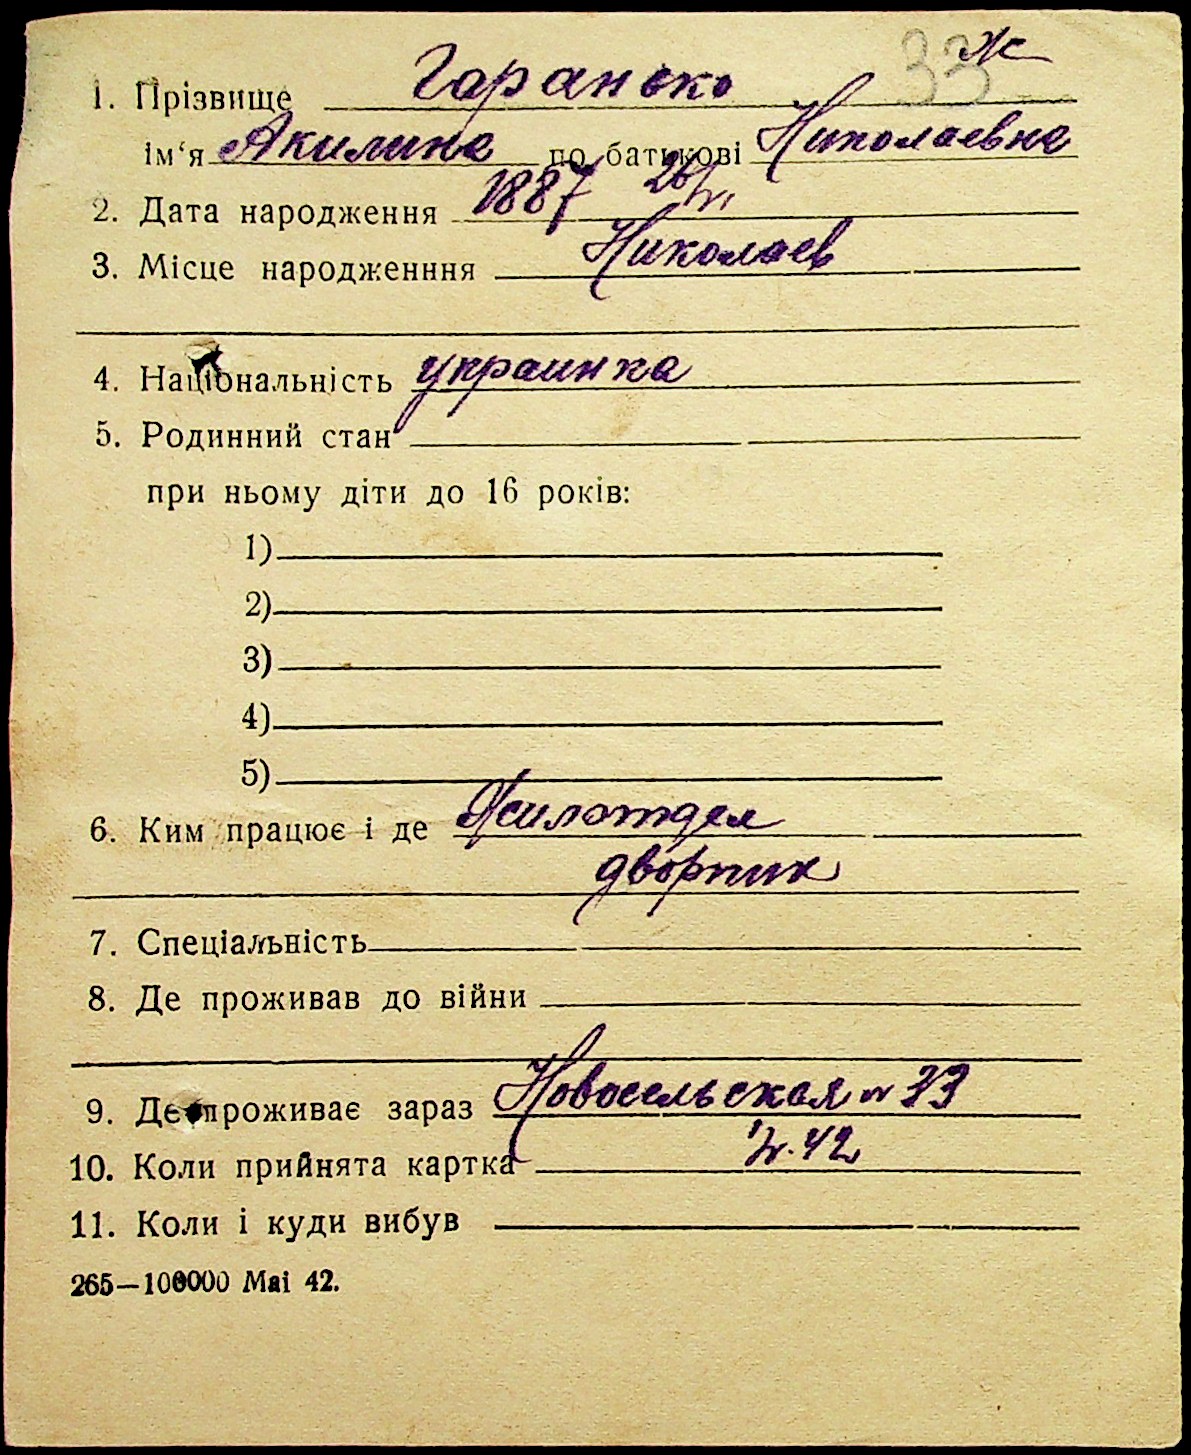 33 ж
1. Прізвище Гаранько
ім‘я Акилина по батькові Николаевна
2. Дата народження 1887 26/VI
3. Місце народженння Николаев
4. Національність украинка
5. Родинний стан
при ньому діти до 16 років:
1)
2)
3)
4)
5)
6. Ким працює і де Жилотдел
дворник
7. Спеціальність
8. Де проживав до війни
9. Де проживає зараз Новосельская № 33
10. Коли прийнята картка 42
11. Коли і куди вибув
265—100000 Mai 42.